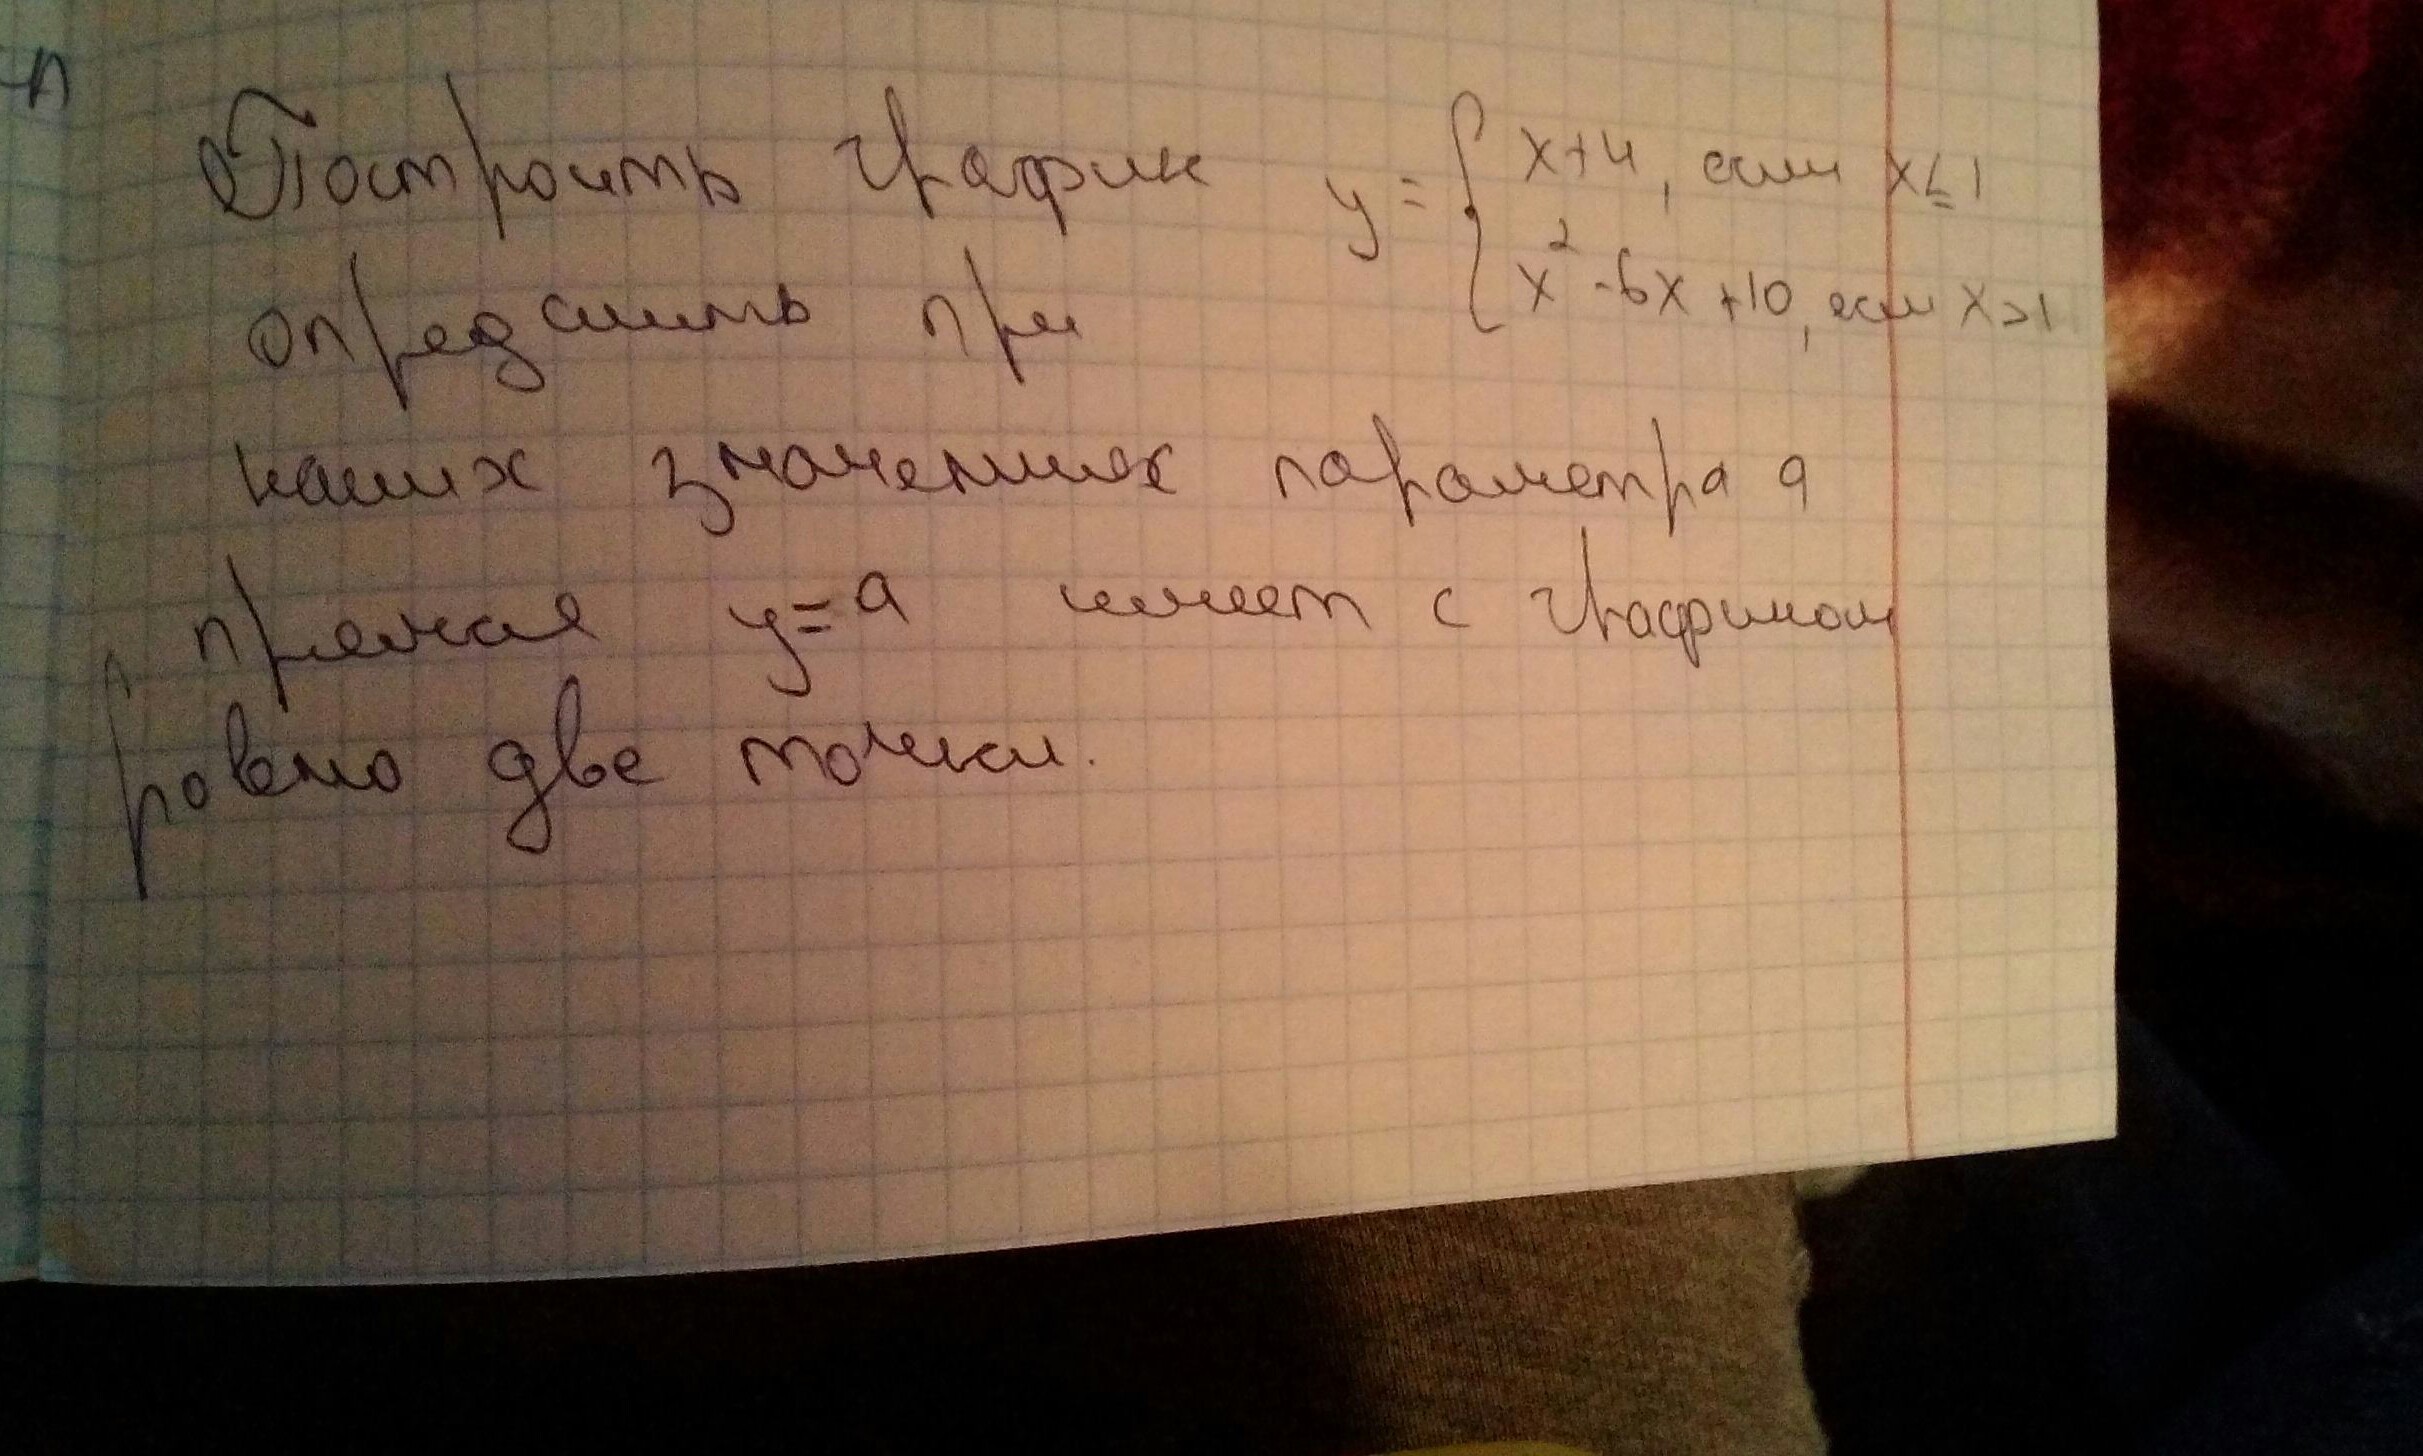 Построить график y = { x+4, если x≤1
x²-6x+10, если x>1
определить при
каких значениях параметра a
прямая y=a имеет с графиком
ровно две точки.